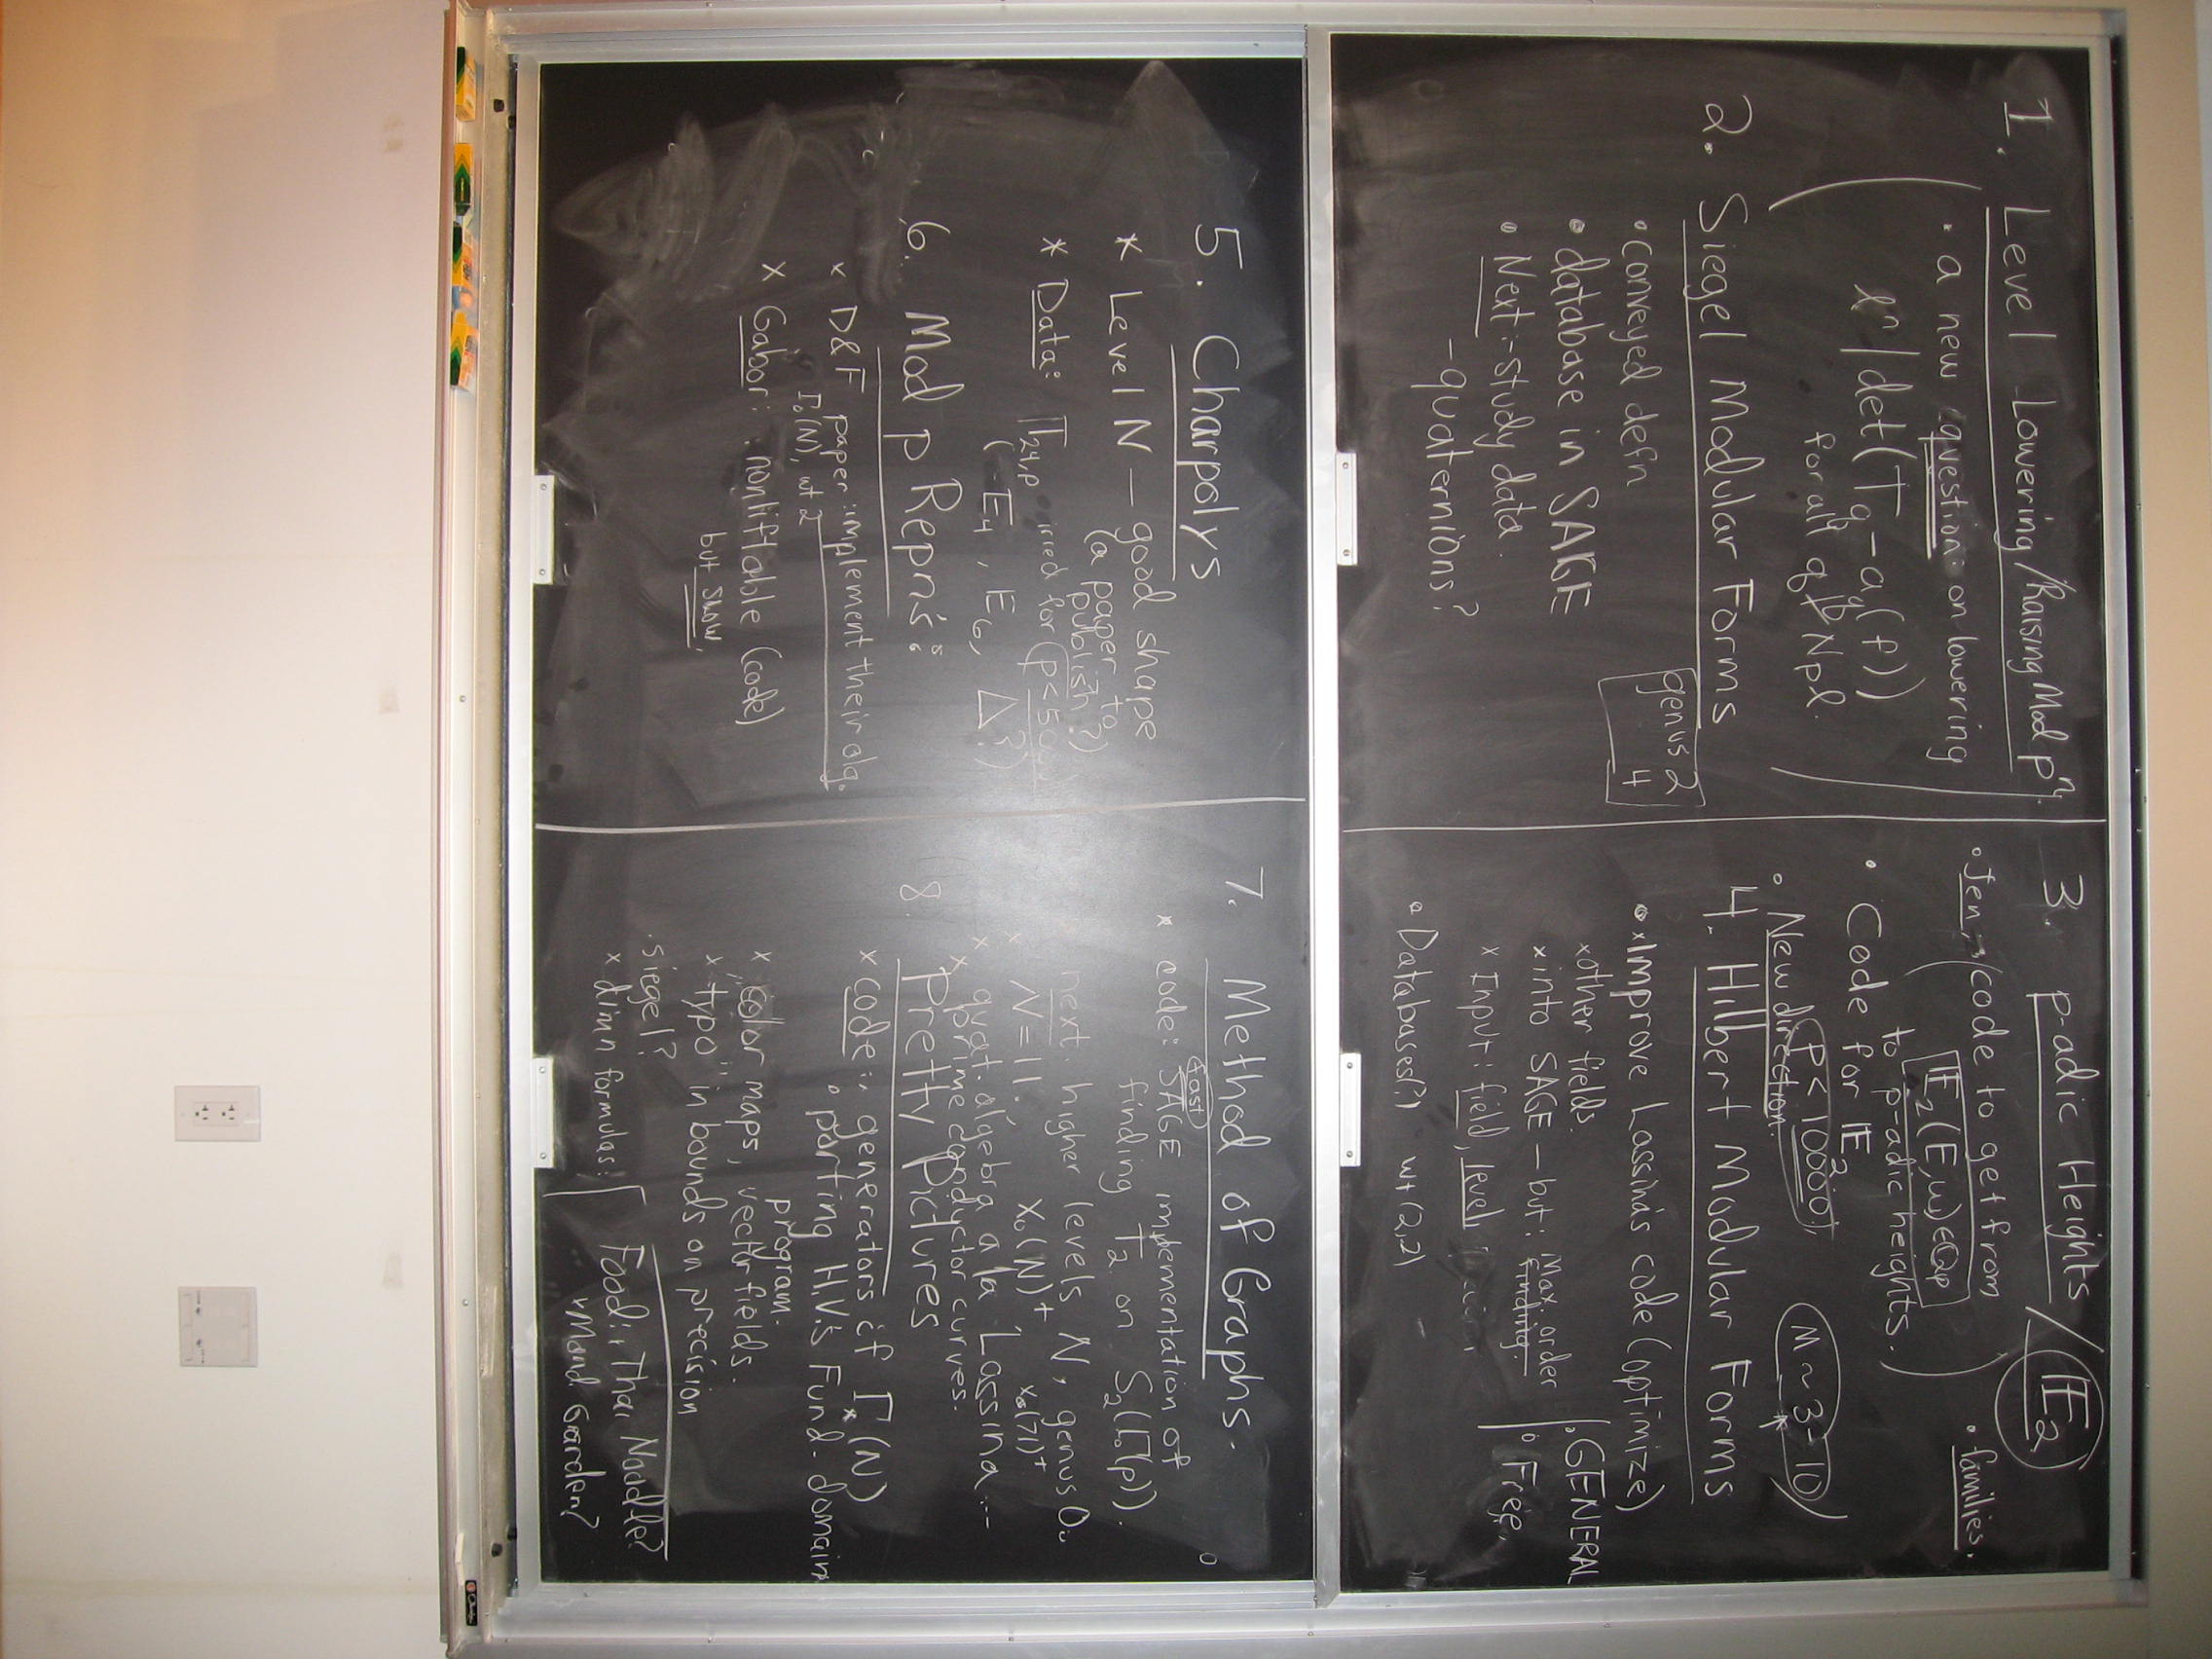 1. Level Lowering/Raising Mod pⁿ.
• a new question on lowering
ℓⁿ | det(T_q - a_q(f))
for all q ∤ Npℓ.
2. Siegel Modular Forms
• conveyed defn
genus 2
4
• database in SAGE
• Next: - study data.
- quaternions?
3. p-adic Heights / 𝔼₂
• families.
• Jen: (code to get from
𝔼₂(E,ω)∈ℚp
to p-adic heights.)
• Code for 𝔼₂
P<10000, M~3-10
• New direction.
4. Hilbert Modular Forms
• × Improve Lassina's code (optimize)
× other fields.
× into SAGE - but: Max. order
finding.
• GENERAL
• Free,
× Input: field, level,
• Databases(?) wt (2,2)
5. Charpolys
* Level N — good shape
(a paper to
publish?)
* Data: 𝕋₂₄,p irred for (p<
(-E₄, E₆, Δ?)
6. Mod p Repn's:
× D&F paper: implement their alg.
Γ₀(N), wt 2
× Gabor: nonliftable (code)
but slow.
7. Method of Graphs.
fast
× code: SAGE implementation of
finding T₂ on S₂(Γ₀(p)).
next: higher levels N, genus 0.
× N=11; X₀(N)⁺ X₀(71)⁺
× quat. algebra a la Lassina...
× prime conductor curves.
8. Pretty Pictures
× code: • generators of Γ*(N)
• porting H.V.'s Fund. domain
program.
× "color maps", vector fields.
× "typo" in bounds on precision
• siegel?
× dim formulas!
Food: × Thai Noodle?
× Mond. Garden?